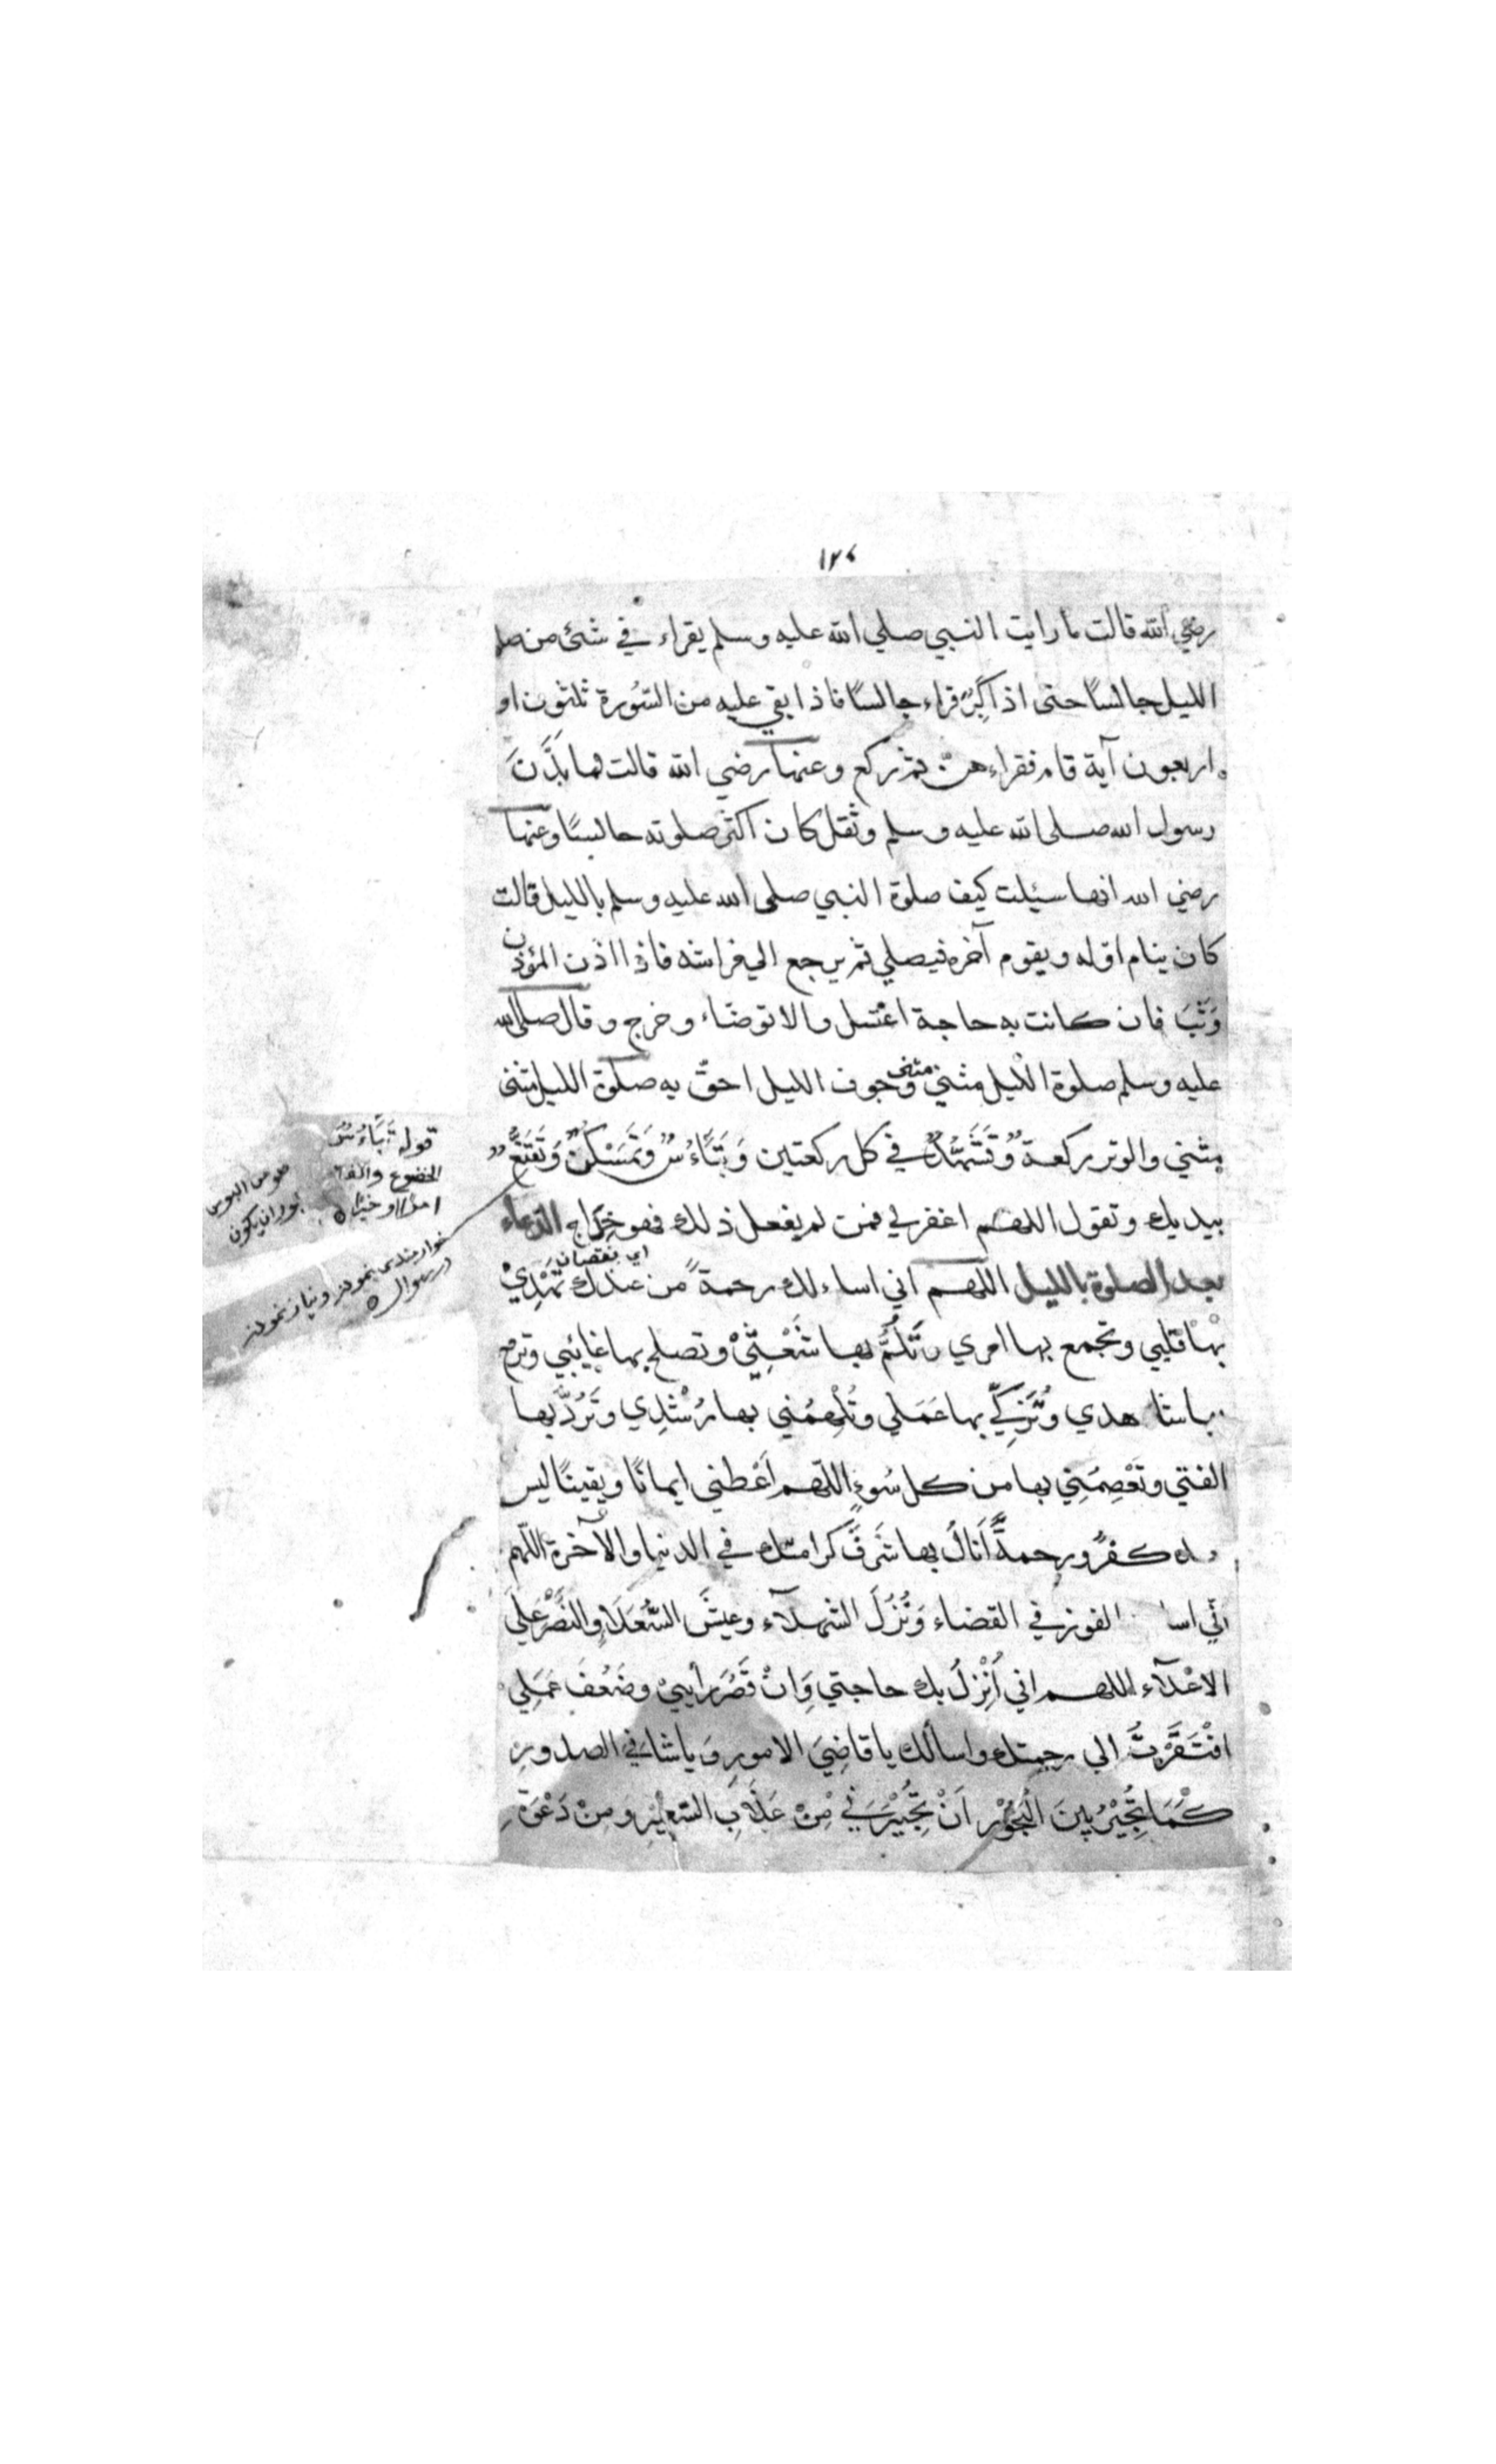 ١٢٤
رضي الله قالت ما رايت النبي صلي الله عليه وسلم يقراء في شئ من صلو
الليل جالسًا حتى اذا كَبِرَ قراء جالسًا فاذا بقي عليه من السُّورة ثلثون او
اربعون آية قام فقراءهنّ ثم ركع وعنها رضي الله قالت لما بَدَّنَ
رسول الله صلى الله عليه وسلم وثقل كان اكثر صلوته جالسًا وعنها
رضي الله انها سئيلت كيف صلوة النبي صلى الله عليه وسلم بالليل قالت
كان ينام اوله ويقوم آخره فيصلي ثم يرجع الي فراشه فاذا اذن المؤذن
وَثَبَ فان كانت به حاجة اغتسل والا توضاء وخرج وقال صلى الله
عليه وسلم صلوة الليل مثني مثنى وجوف الليل احقّ به صلوة الليل مثنى
مثني والوتر ركعة وتَشَهَّدُ في كل ركعتين وَتَبَّاءُسُ وَتَمَسْكَنُ وَتَقَنَّعُ
بيديك وتقول اللهم اغفر لي فمن لم يفعل ذلك فهو خِدَاج الدعاء
اي نقصان
بعد الصلوة بالليل اللهم اني اساءلك رحمة من عندك تَهْدِيْ
بها قلبي وتجمع بها امري وَتَلُمُّ بها شَعْثِيْ وتصلح بها غايبي وترفع
بها شاهدي وَتُزَكِّي بها عَمَلي وتُلْهِمُني بها رُشْدِي وَتَرُدُّ بها
الفتي وتَعْصِمُنِي بها من كل سُوءٍ اللهم اَعْطِني ايمانًا ويقينًا ليس
بعده كفرٌ ورحمةً اَنَالُ بها شَرَفَ كرامتك في الدنيا والآخرة اللهم
انّي اسا الفوز في القضاء وَنُزُلَ الشهدآء وعَيشَ السُّعَدَاءِ والنَّصْرَ علي
الاعْدآء اللهم اني اُنْزِلُ بك حاجتي وَاِنْ قَصُرَ رأييْ وضَعُفَ عَمَلِي
افْتَقَرْتُ الي رحمتك واسألك يا قاضِيَ الامورِ وَيا شافِيَ الصدور
كَمَا تُجِيْرُ بينَ الْبُحُوْرِ اَنْ تُجِيْرَنِي مِنْ عَذَابِ السَّعِيْرِ وَمِنْ دَعْوَةِ
قوله تَبَاءُسُ
الخضوع والفقر
هو من البوس
يجوز ان يكون
امرًا او خبرًا